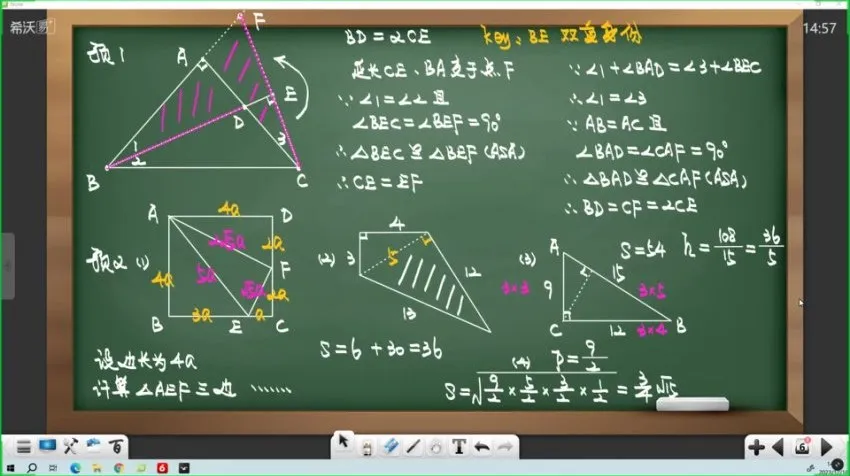 希沃易+
14:57
预1
A
F
E
D
B
C
1
2
3
BD=2CE
延长CE、BA交于点F
∵∠1=∠2且
∠BEC=∠BEF=90°
∴△BEC≌△BEF(ASA)
∴CE=EF
key:BE双重身份
∵∠1+∠BAD=∠3+∠BEC
∴∠1=∠3
∵AB=AC且
∠BAD=∠CAF=90°
∴△BAD≌△CAF(ASA)
∴BD=CF=2CE
预2 (1)
A
4a
D
2√5a
2a
F
4a
5a
√5a
2a
B
3a
E
a
C
设边长为4a
计算△AEF三边……
(2)
4
3
5
12
13
S=6+30=36
(3)
A
15
3×5
3×3
9
C
12
3×4
B
S=54
h=108/15=36/5
(4) P=9/2
S=√(9/2×5/2×3/2×1/2)=3/4√15